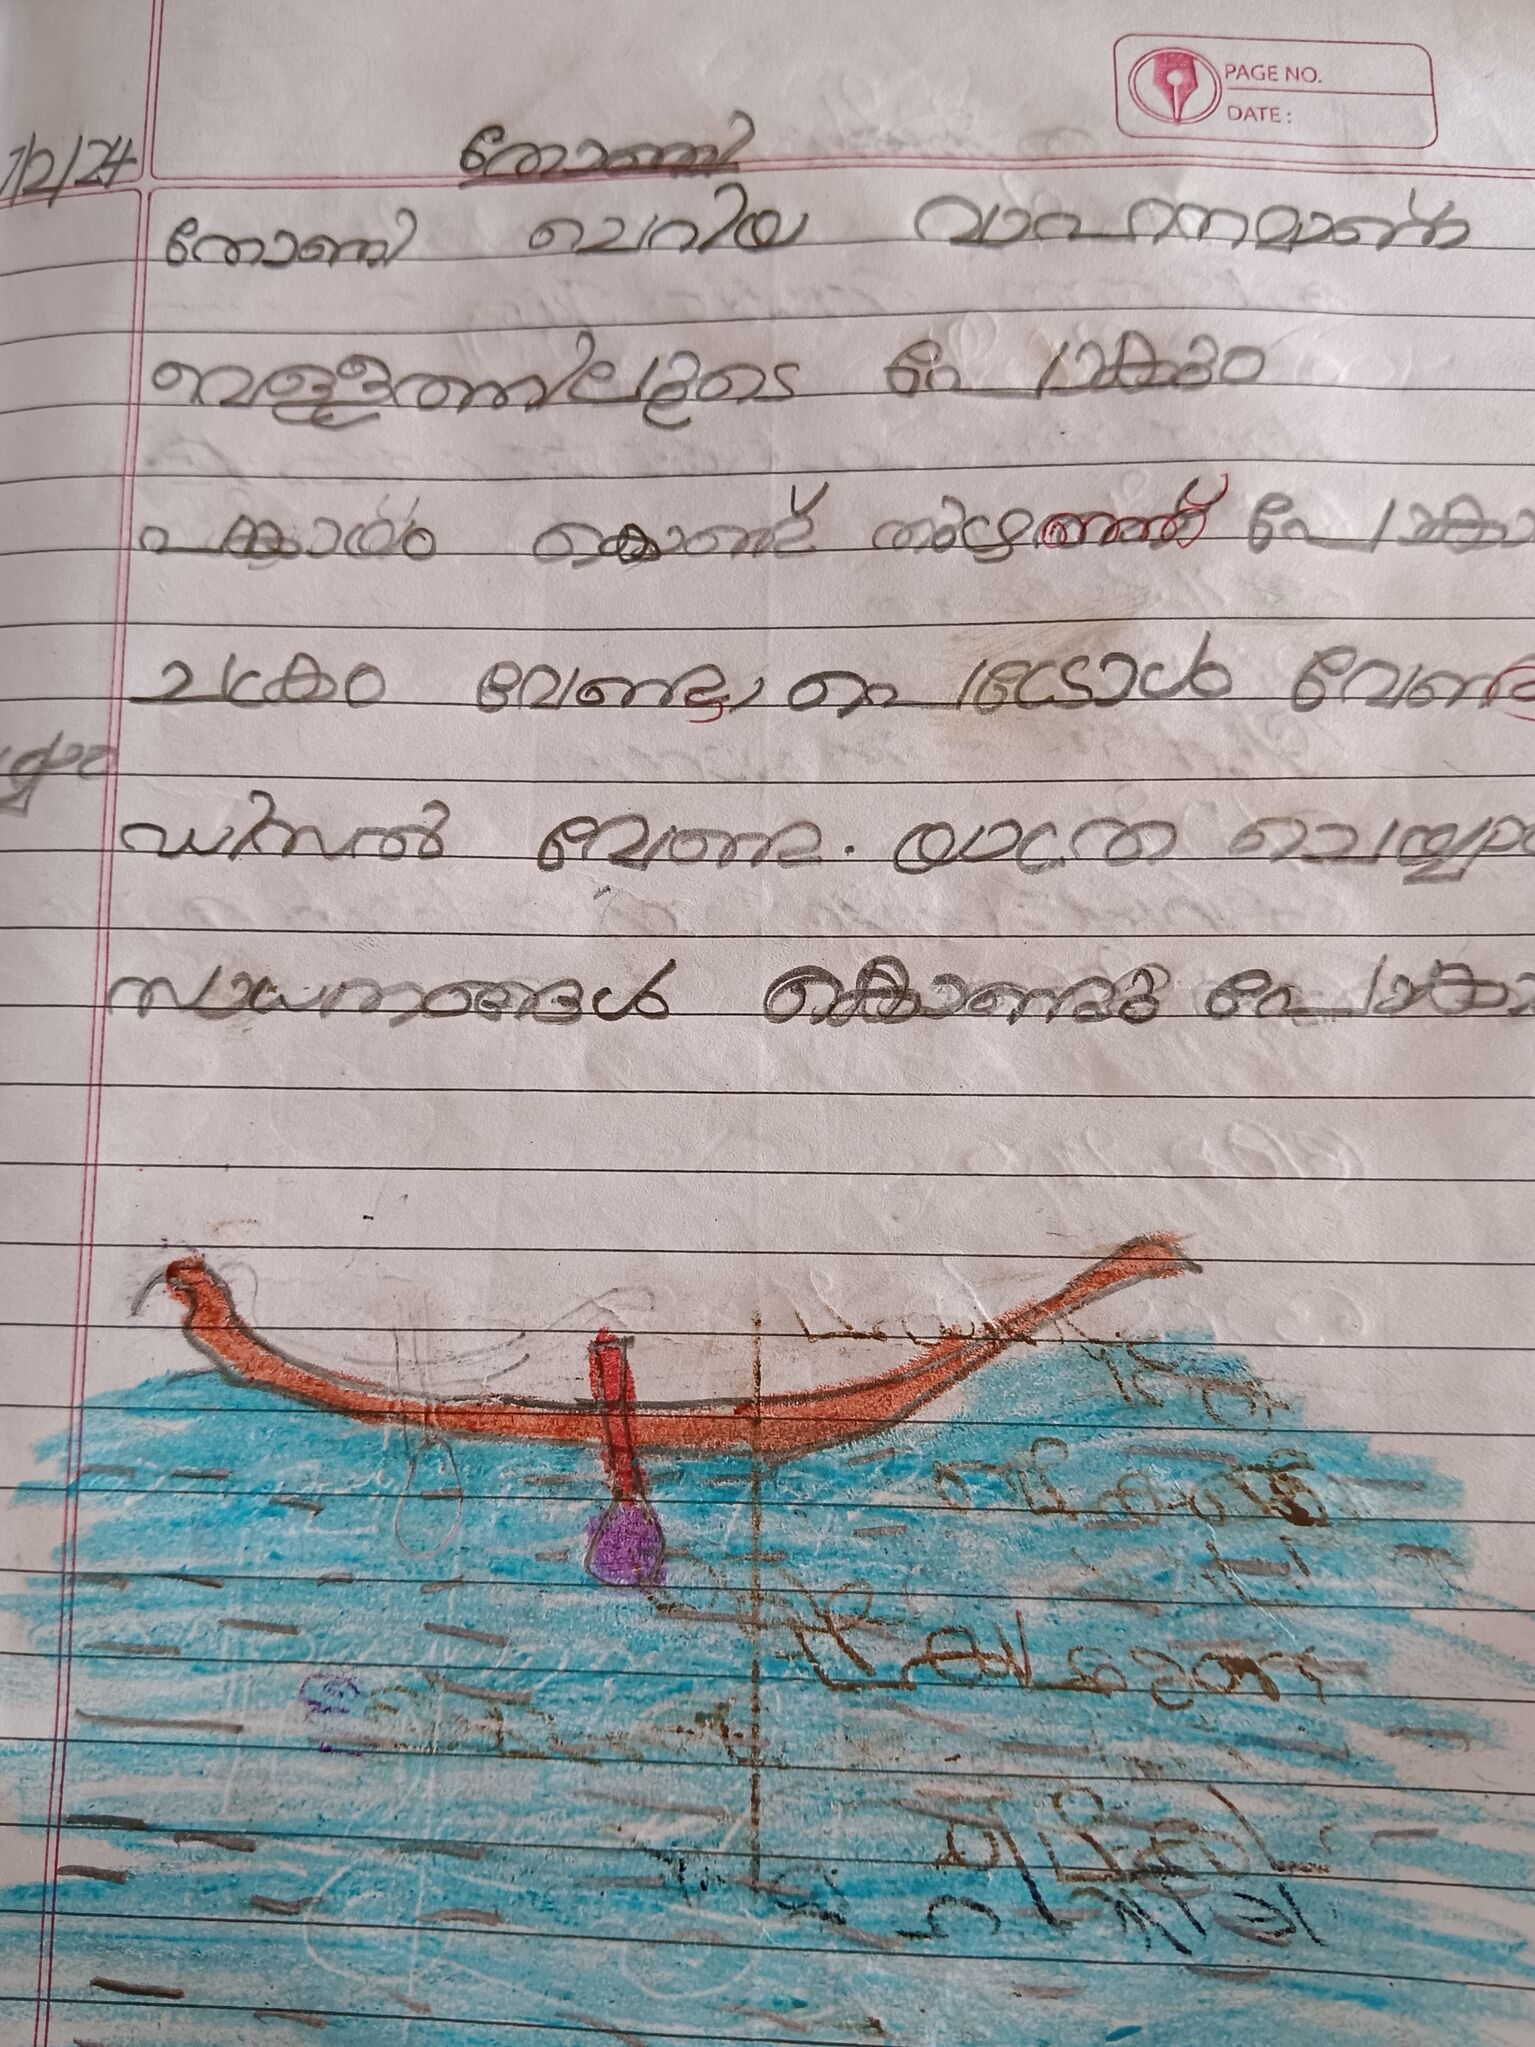 PAGE NO.
DATE:
/12/24
തോണി
തോണി ചെറിയ വാഹനമാണ്
വെള്ളത്തിലൂടെ പോകും
പങ്കായം കൊണ്ട് തുഴഞ്ഞ് പോകാ
ചക്രം വേണ്ട, പെട്രോൾ വേണ്ട
ഡീസൽ വേണ്ട. യാത്ര ചെയ്യാ
സാധനങ്ങൾ കൊണ്ടു പോകാ